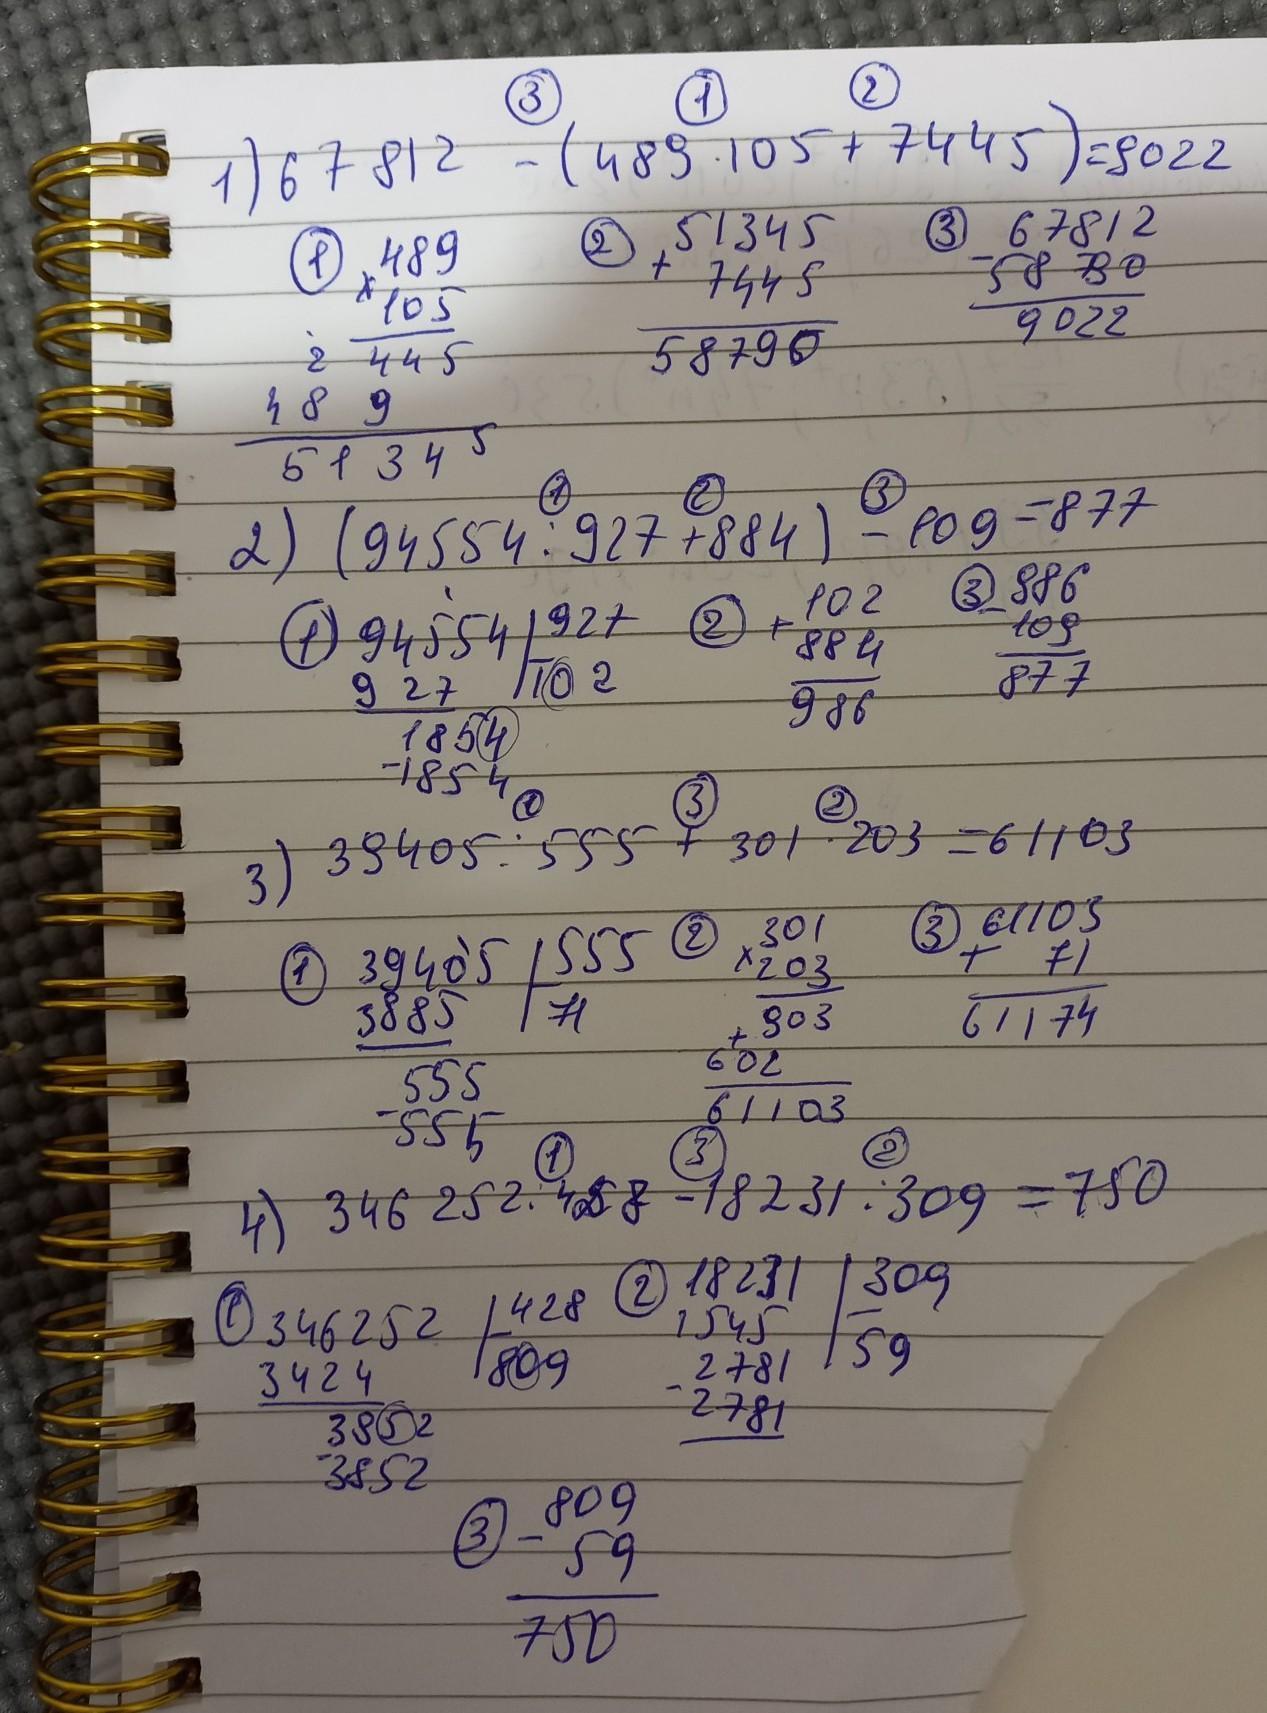 ③ ① ②
1) 67812 - (489·105 + 7445) = 9022
① × 489 ② + 51345 ③ - 67812
105 7445 58790
2445 58790 9022
489
51345
① ② ③
2) (94554 : 927 + 884) - 109 = 877
① 94554 | 927 ② + 102 ③ - 986
927 | 102 884 109
1854 986 877
- 1854
① ③ ②
3) 39405 : 555 + 301 · 203 = 61103
① 39405 | 555 ② × 301 ③ + 61103
3885 | 71 203 71
555 + 903 61174
- 555 602
61103
① ③ ②
4) 346252 : 428 - 18231 : 309 = 750
① 346252 | 428 ② 18231 | 309
3424 | 809 1545 | 59
3852 - 2781
- 3852 2781
③ - 809
59
750